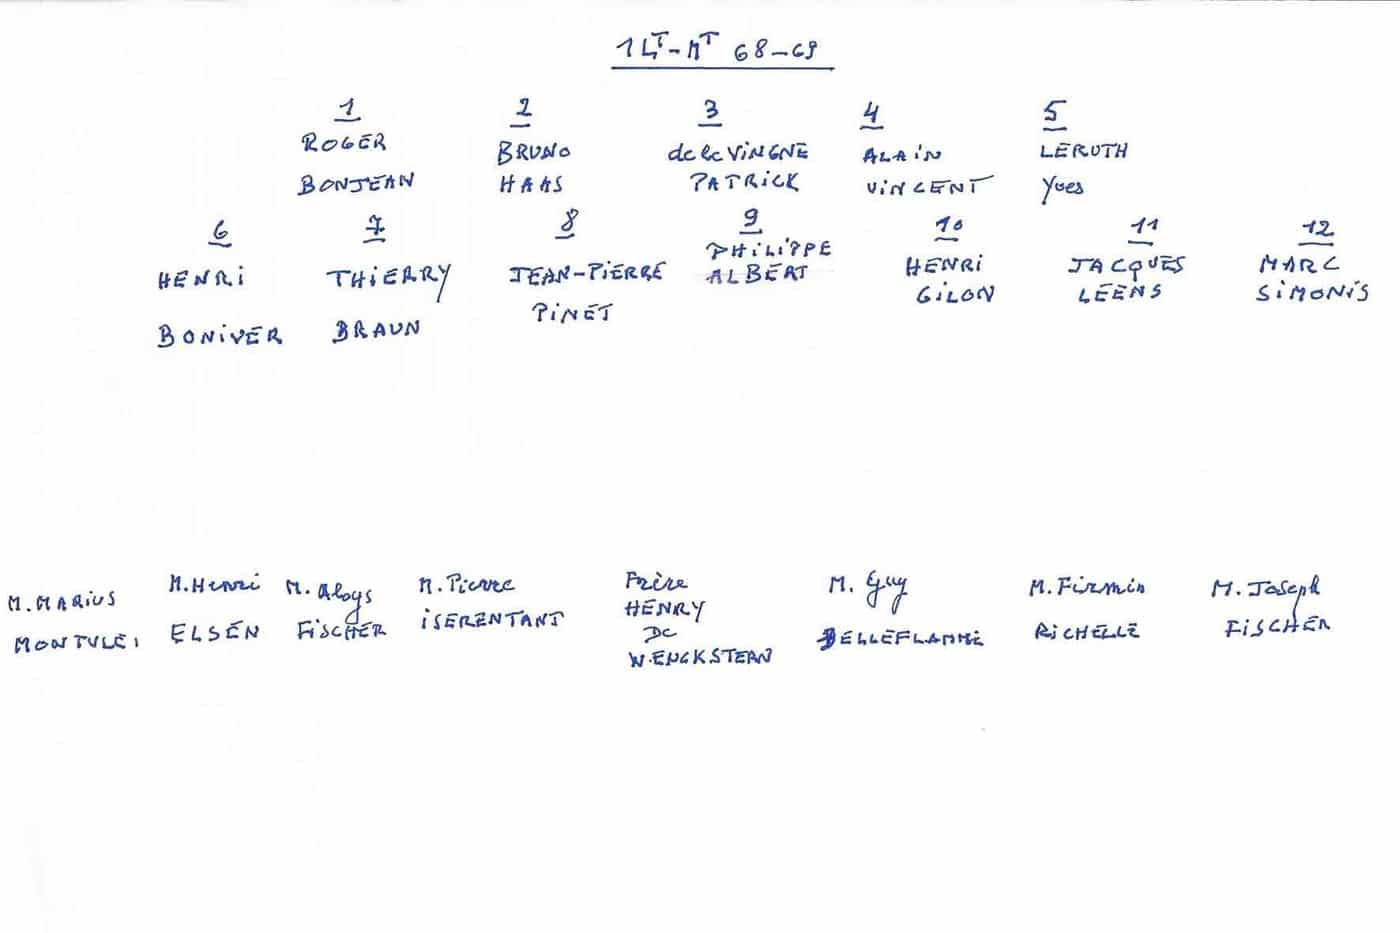 1 LT-MT 68-69
1 2 3 4 5
ROGER BRUNO de le VINGNE ALAIN LERUTH
BONJEAN HAAS PATRICK VINCENT Yves
6 7 8 9 10 11 12
HENRI THIERRY JEAN-PIERRE PHILIPPE HENRI JACQUES MARC
BONIVER BRAUN PINET ALBERT GILON LEENS SIMONIS
M. MARIUS M. Henri M. Aloys M. Pierre Frère M. Guy M. Firmin M. Joseph
MONTULET ELSEN FISCHER ISERENTANT HENRY BELLEFLAMME RICHELLE FISCHER
DE
WENCKSTERN